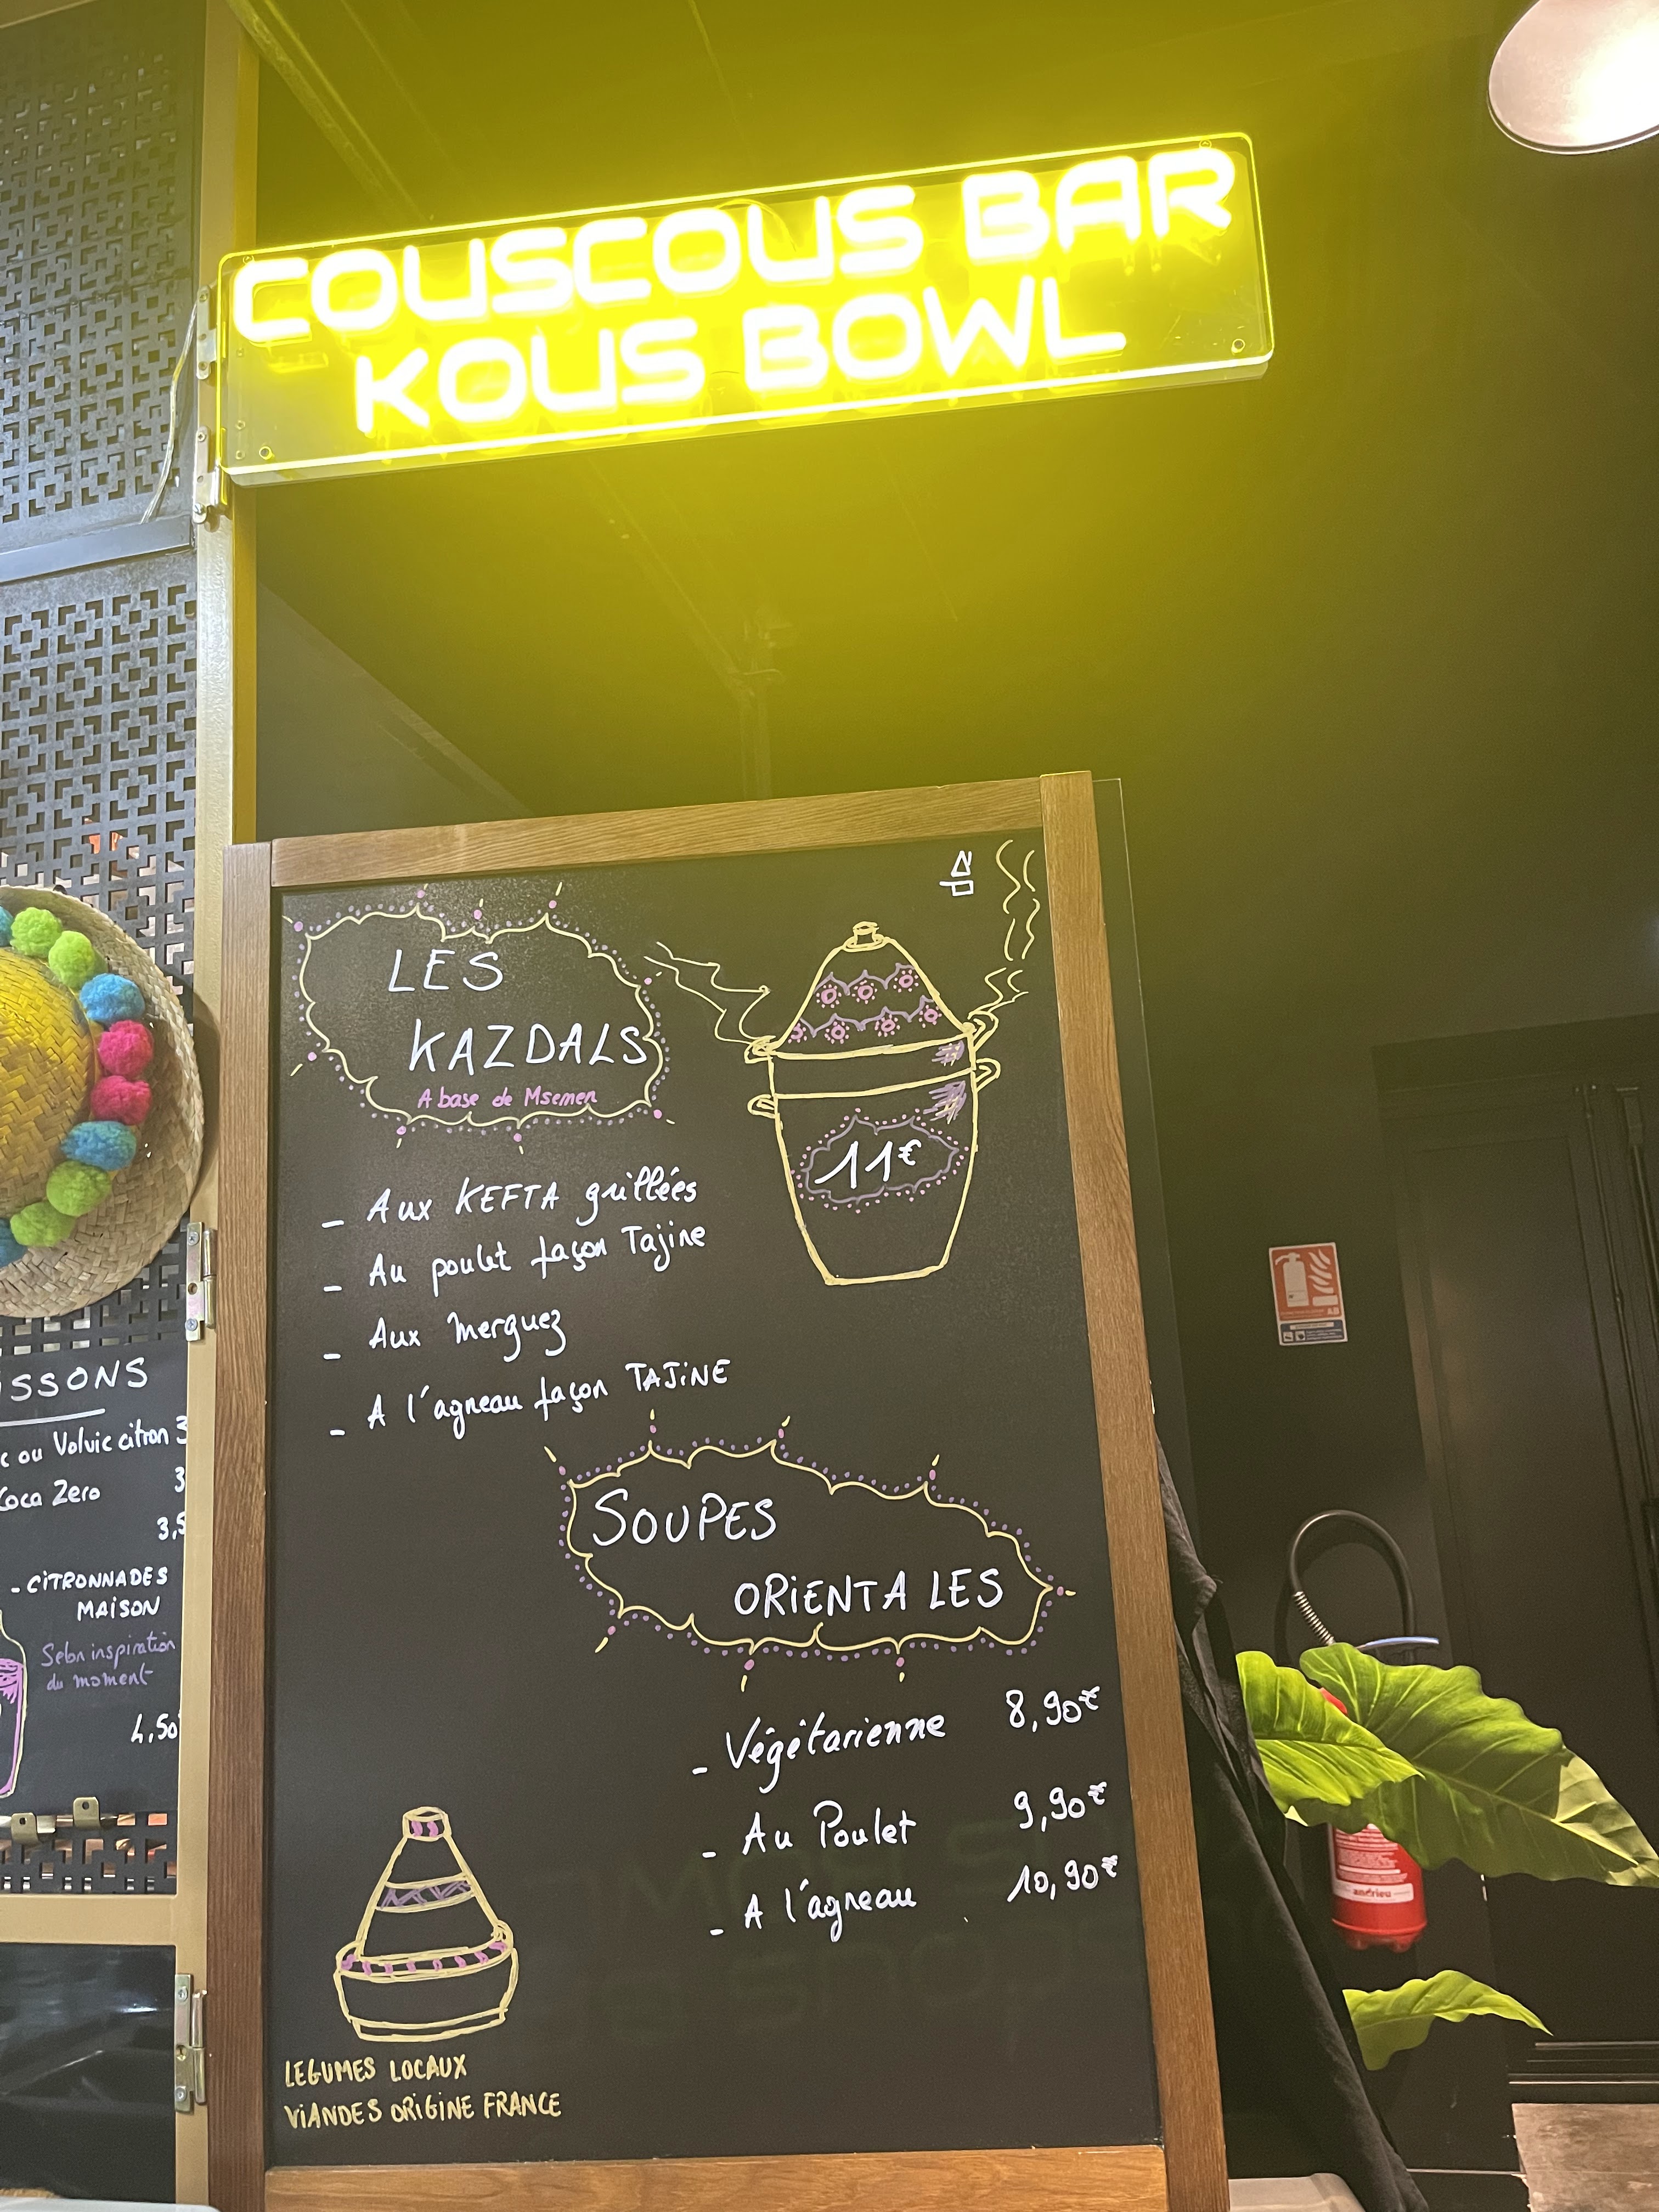 COUSCOUS BAR
KOUS BOWL
LES
KAZDALS
A base de Msemen
11€
- Aux KEFTA grillées
- Au poulet façon Tajine
- Aux Merguez
- A l'agneau façon TAJiNE
SOUPES
ORiENTALES
- Végétarienne 8,90€
- Au Poulet 9,90€
- A l'agneau 10,90€
LEGUMES LOCAUX
ViANDES ORiGiNE FRANCE
iSSONS
c ou Volvic citron 3
Coca Zero 3
3,5
- CiTRONNADES
MAiSON
Selon inspiration
du moment
4,50
andrieu